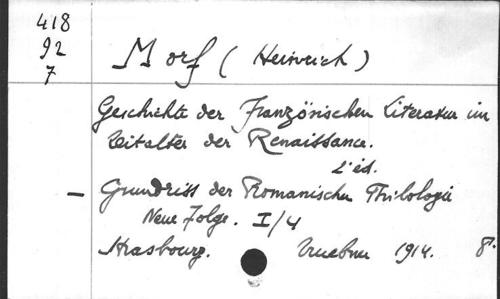 418
92
7
Morf (Heinrich)
Geschichte der Französischen Literatur im
Zeitalter der Renaissance.
2e éd.
— Grundriss der Romanischen Philologie
Neue Folge. I/4
Strasbourg. Truebner 1914. 8°.